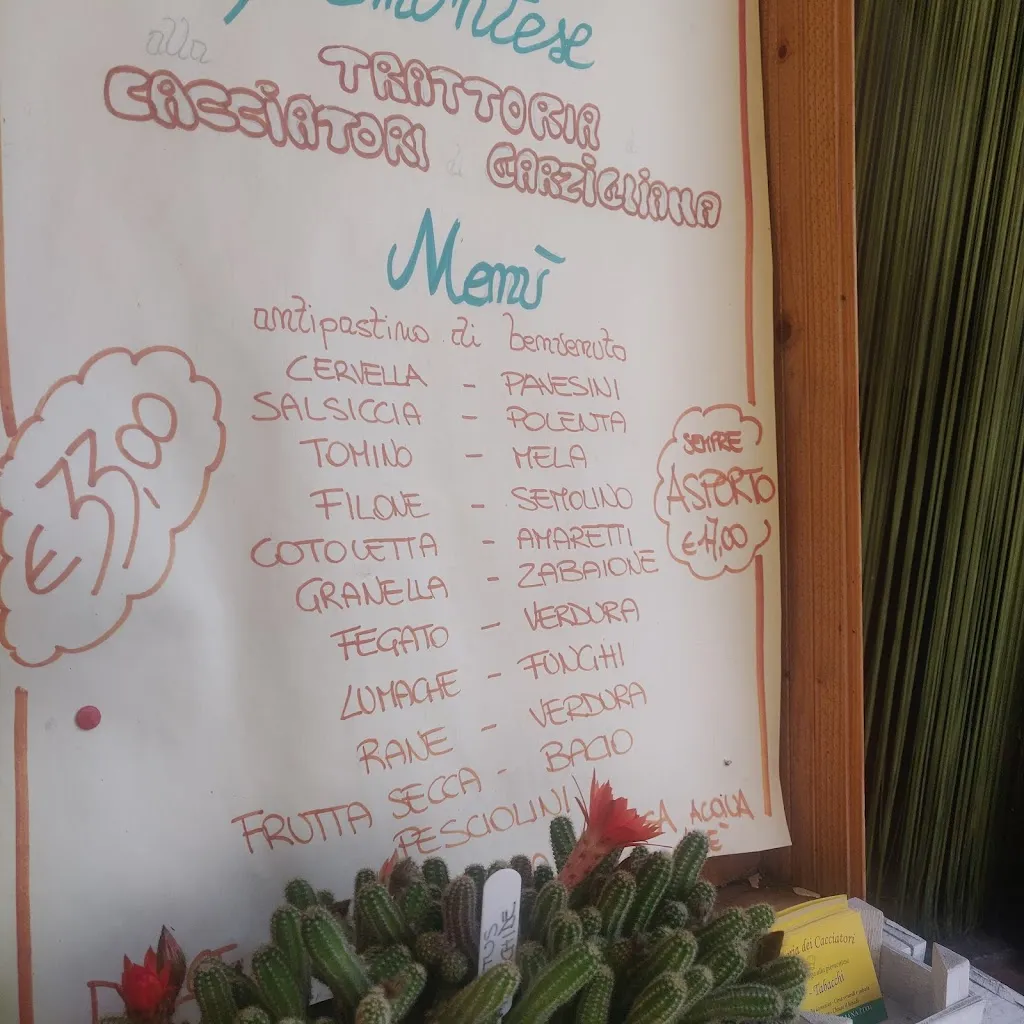 alla
TRATTORIA
CACCIATORI di GARZIGLIANA
Menù
antipastino di benvenuto
CERVELLA - PANESINI
SALSICCIA - POLENTA
TOMINO - MELA
FILONE - SEMOLINO
COTOLETTA - AMARETTI
GRANELLA - ZABAIONE
FEGATO - VERDURA
LUMACHE - FUNGHI
RANE - VERDURA
FRUTTA SECCA - BACIO
PESCIOLINI
ACQUA
€ 33,00
SEMPRE
ASPORTO
€ 17,00
dei Cacciatori
Tabacchi